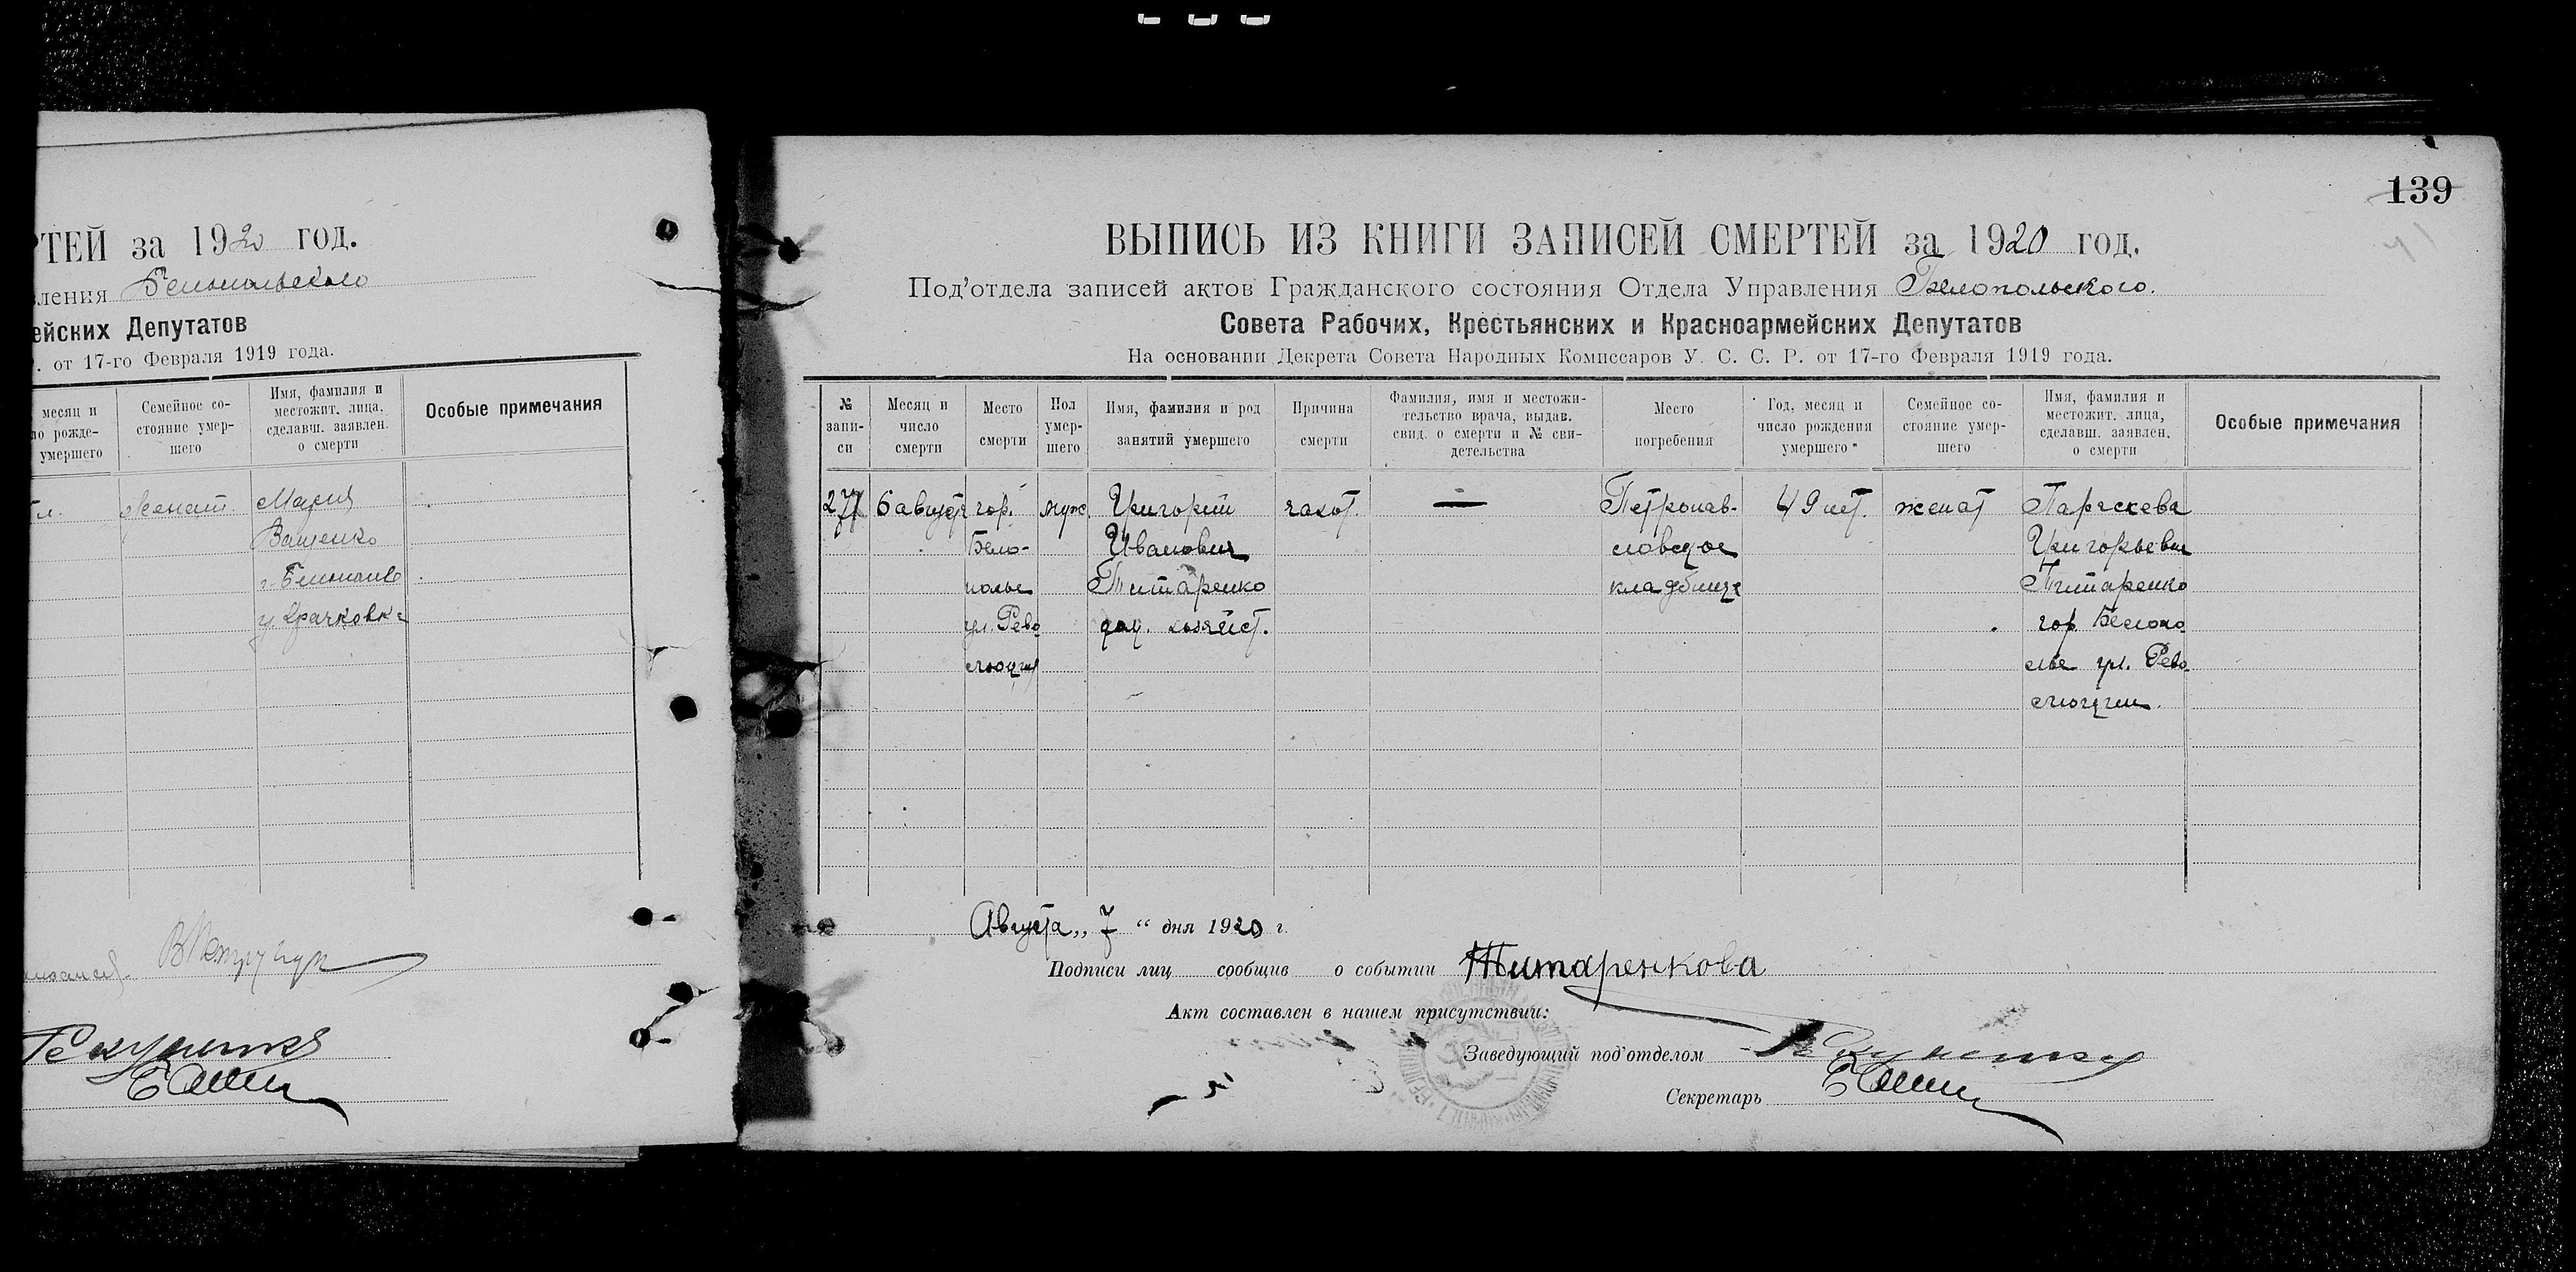 РТЕЙ за 1920 год.
вления Белопольского
ейских Депутатов
. от 17-го Февраля 1919 года.
месяц и
ло рожде-
умершего
Семейное со-
стояние умер-
шего
Имя, фамилия и
местожит. лица,
сделавш. заявлен.
о смерти
Особые примечания
женат
Мария
Ващенко
г. Белополье
139
ВЫПИСЬ ИЗ КНИГИ ЗАПИСЕЙ СМЕРТЕЙ за 1920 год.
Под'отдела записей актов Гражданского состояния Отдела Управления Белопольского.
Совета Рабочих, Крестьянских и Красноармейских Депутатов
На основании Декрета Совета Народных Комиссаров У. С. С. Р. от 17-го Февраля 1919 года.
№
запи-
си
Месяц и
число
смерти
Место
смерти
Пол
умер-
шего
Имя, фамилия и род
занятий умершего
Причина
смерти
Фамилия, имя и местожи-
тельство врача, выдав.
свид. о смерти и № сви-
детельства
Место
погребения
Год, месяц и
число рождения
умершего
Семейное со-
стояние умер-
шего
Имя, фамилия и
местожит. лица,
сделавш. заявлен.
о смерти
Особые примечания
277
6 августа
гор.
Бело-
полье
ул. Рево
люции
муж.
Григорий
Иванович
Титаренко
дом. хозяйст.
чахот.
—
Петропав-
ловское
кладбище
49 лет.
женат
Параскева
Григорьевна
Титаренко
гор. Белопо
лье ул. Рево
люции.
Августа „ 7 “ дня 1920 г.
Подписи лиц сообщив о событии Титаренкова
Акт составлен в нашем присутствии:
Заведующий под'отделом
Секретарь